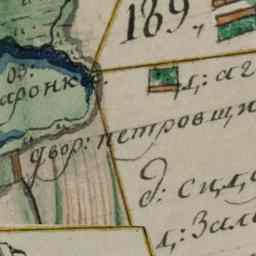 189.
оз:
аронк
д: аг
двор: петровщи
д: сидо
д: Зале